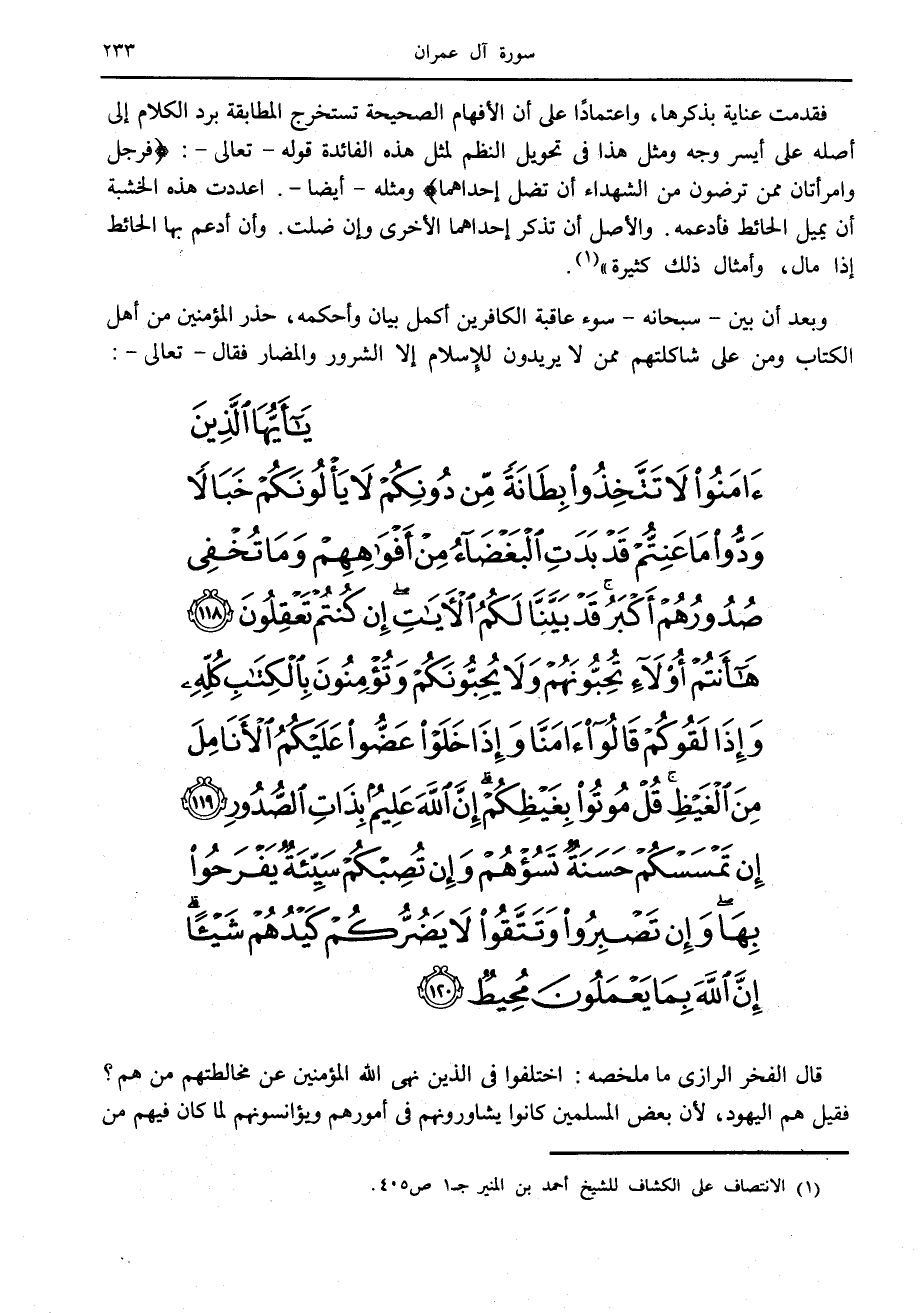 سورة آل عمران ٢٣٣
فقدمت عناية بذكرها، واعتمادًا على أن الأفهام الصحيحة تستخرج المطابقة برد الكلام إلى
أصله على أيسر وجه ومثل هذا فى تحويل النظم لمثل هذه الفائدة قوله - تعالى - : ﴿فرجل
وامرأتان ممن ترضون من الشهداء أن تضل إحداهما﴾ ومثله - أيضا -. اعددت هذه الخشبة
أن يميل الحائط فأدعمه. والأصل أن تذكر إحداهما الأخرى وإن ضلت. وأن أدعم بها الحائط
إذا مال، وأمثال ذلك كثيرة»(١).
وبعد أن بين - سبحانه - سوء عاقبة الكافرين أكمل بيان وأحكمه، حذر المؤمنين من أهل
الكتاب ومن على شاكلتهم ممن لا يريدون للإسلام إلا الشرور والمضار فقال - تعالى - :
يَٰٓأَيُّهَا ٱلَّذِينَ
ءَامَنُوا۟ لَا تَتَّخِذُوا۟ بِطَانَةً مِّن دُونِكُمْ لَا يَأْلُونَكُمْ خَبَالًا
وَدُّوا۟ مَا عَنِتُّمْ قَدْ بَدَتِ ٱلْبَغْضَآءُ مِنْ أَفْوَٰهِهِمْ وَمَا تُخْفِى
صُدُورُهُمْ أَكْبَرُ ۚ قَدْ بَيَّنَّا لَكُمُ ٱلْأَيَٰتِ ۖ إِن كُنتُمْ تَعْقِلُونَ ١١٨
هَٰٓأَنتُمْ أُو۟لَآءِ تُحِبُّونَهُمْ وَلَا يُحِبُّونَكُمْ وَتُؤْمِنُونَ بِٱلْكِتَٰبِ كُلِّهِۦ
وَإِذَا لَقُوكُمْ قَالُوٓا۟ ءَامَنَّا وَإِذَا خَلَوْا۟ عَضُّوا۟ عَلَيْكُمُ ٱلْأَنَامِلَ
مِنَ ٱلْغَيْظِ ۚ قُلْ مُوتُوا۟ بِغَيْظِكُمْ ۗ إِنَّ ٱللَّهَ عَلِيمٌۢ بِذَاتِ ٱلصُّدُورِ ١١٩
إِن تَمْسَسْكُمْ حَسَنَةٌ تَسُؤْهُمْ وَإِن تُصِبْكُمْ سَيِّئَةٌ يَفْرَحُوا۟
بِهَا ۖ وَإِن تَصْبِرُوا۟ وَتَتَّقُوا۟ لَا يَضُرُّكُمْ كَيْدُهُمْ شَيْـًٔا ۗ
إِنَّ ٱللَّهَ بِمَا يَعْمَلُونَ مُحِيطٌ ١٢٠
قال الفخر الرازى ما ملخصه : اختلفوا فى الذين نهى الله المؤمنين عن مخالطتهم من هم ؟
فقيل هم اليهود، لأن بعض المسلمين كانوا يشاورونهم فى أمورهم ويؤانسونهم لما كان فيهم من
(١) الانتصاف على الكشاف للشيخ أحمد بن المنير جـ١ ص٤٠٥.